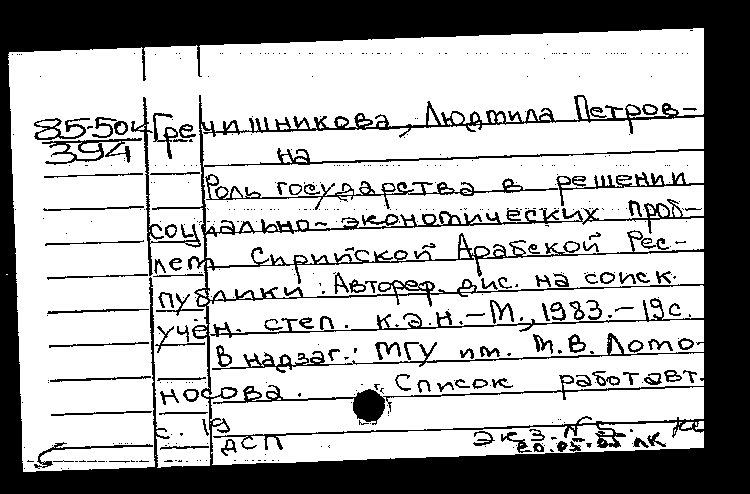 85-50к Гречишникова, Людмила Петров-
394 на
Роль государства в решении
социально-экономических проб-
лем Сирийской Арабской Рес-
публики: Автореф. дис. на соиск.
учён. степ. к.э.н. - М., 1983. - 19с.
В надзаг.: МГУ им. М.В. Ломо-
носова. Список работ авт.
с. 19
ДСП Экз. № 5.
ЛК